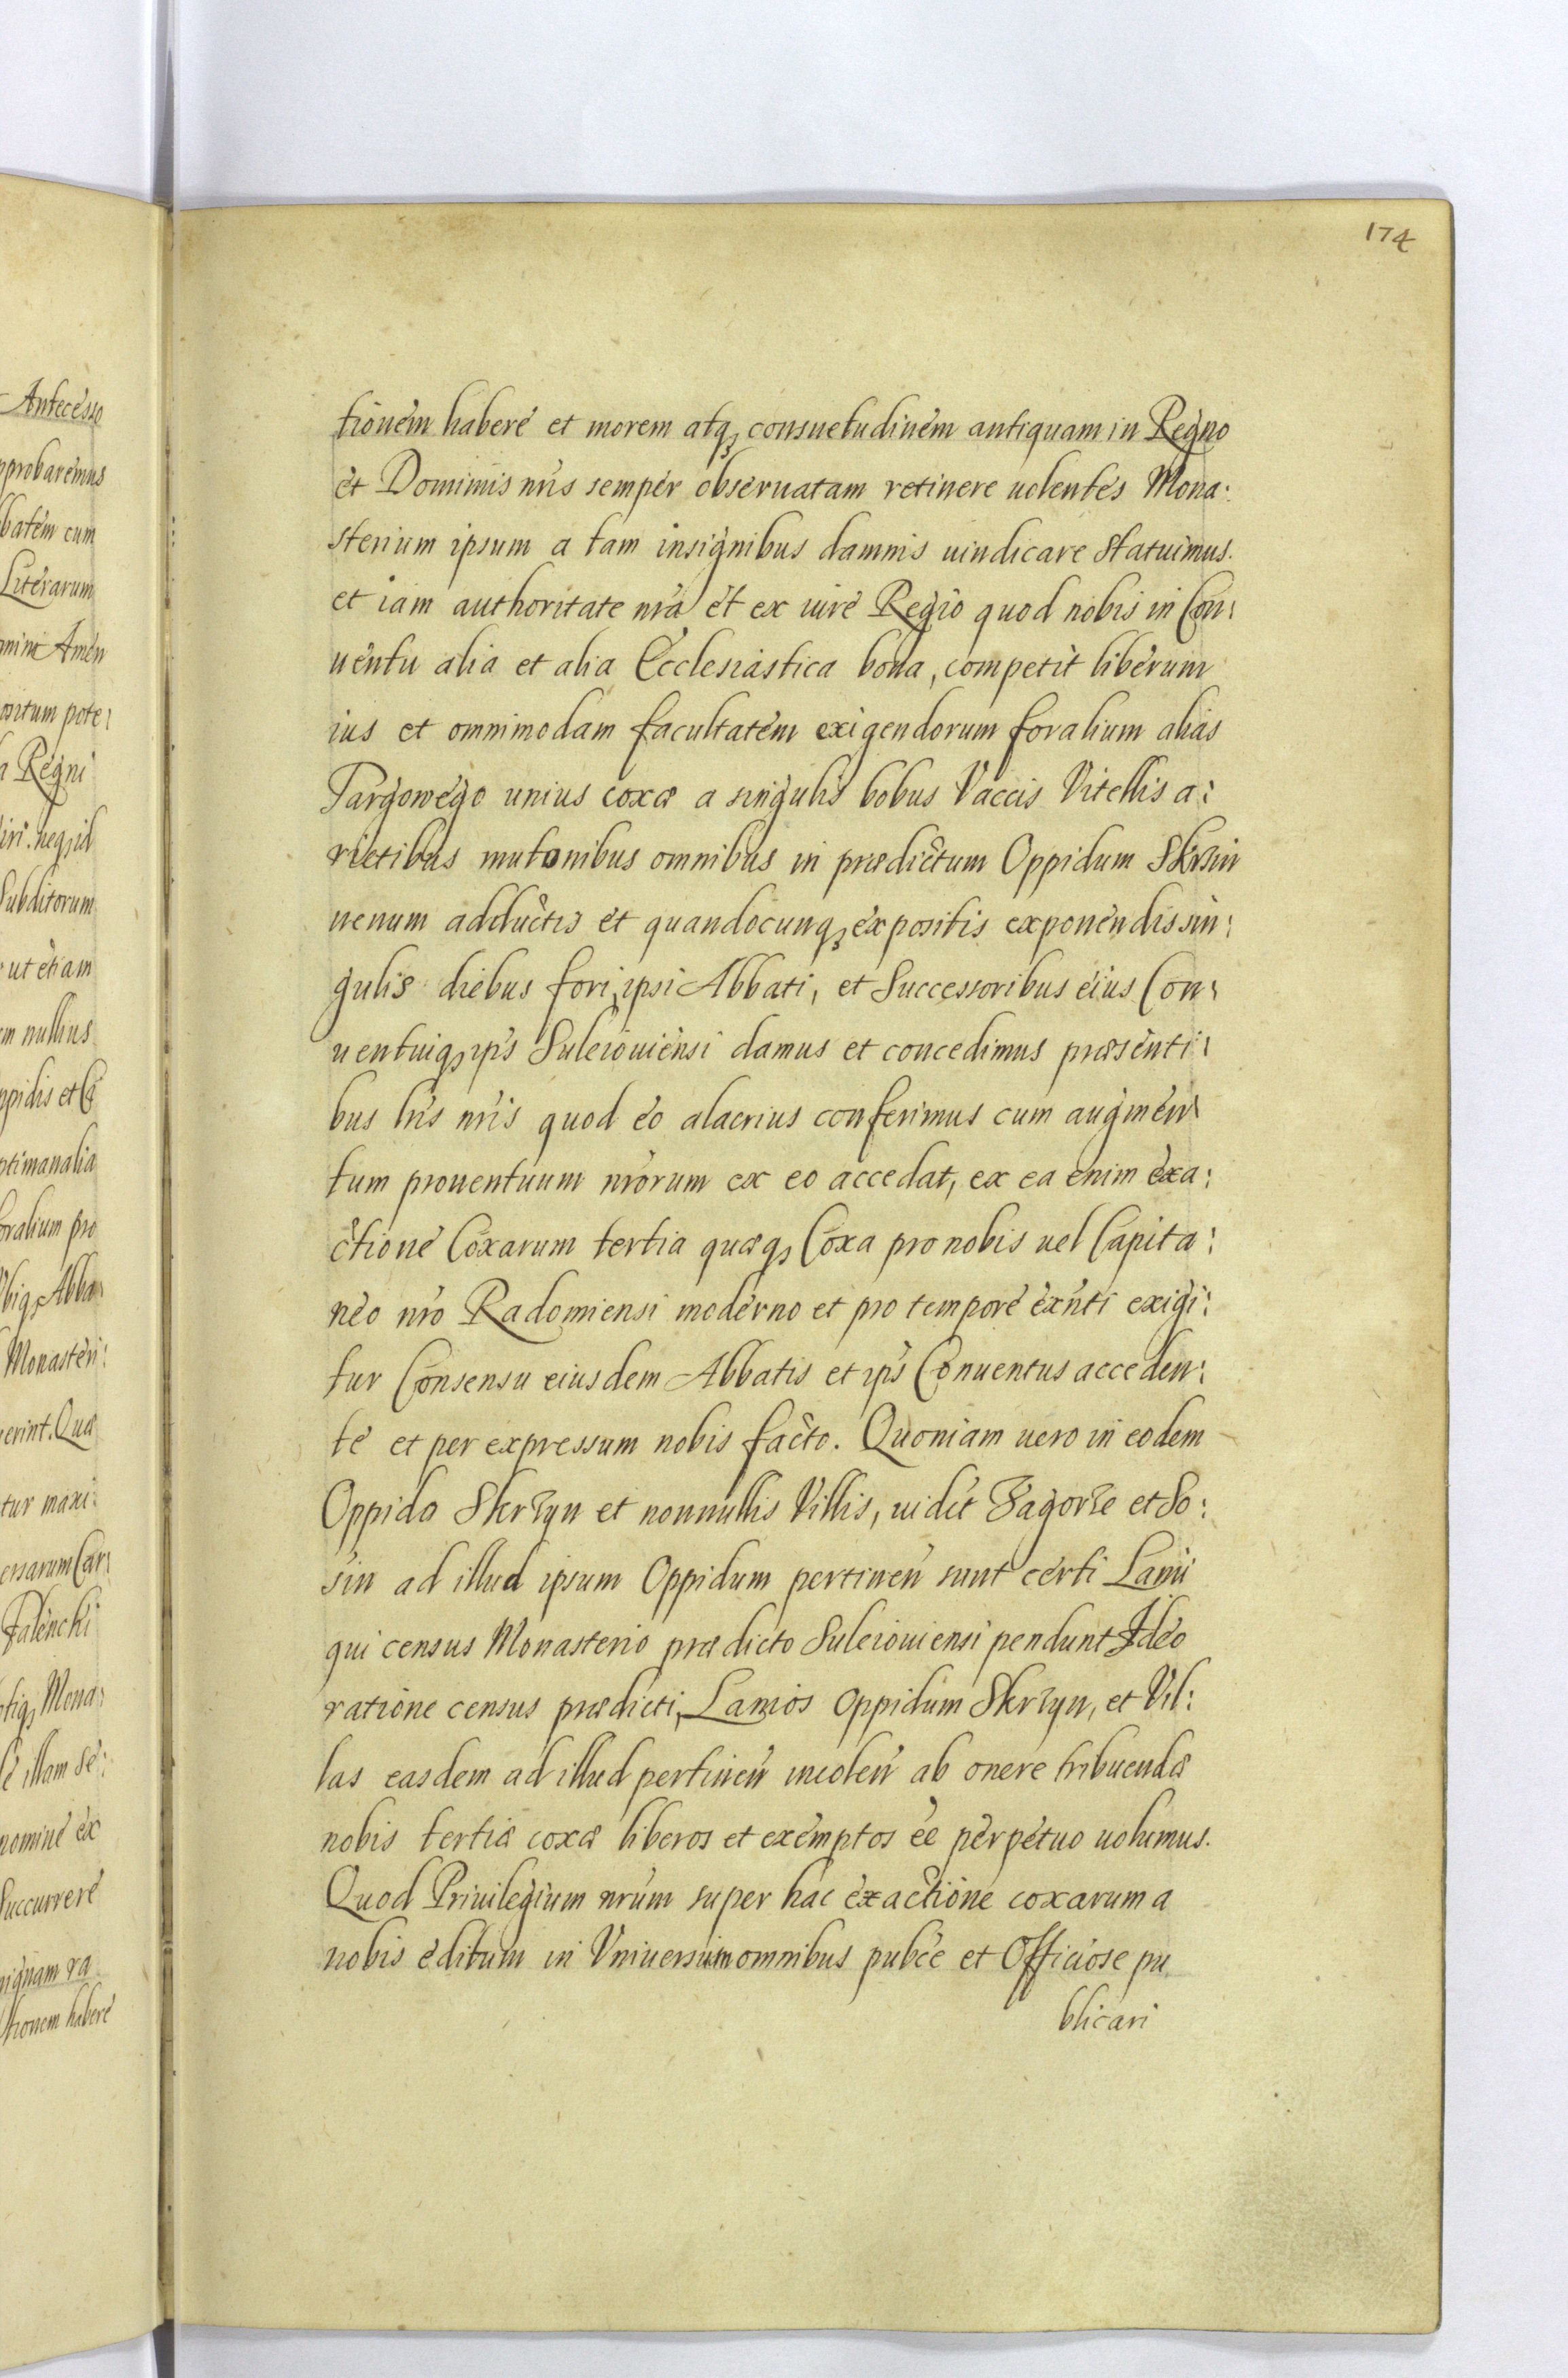 174
tionem habere et morem atq₃ consuetudinem antiquam in Regno
et Dominiis nris semper obseruatam retinere uolentes Mona:
sterium ipsum a tam insignibus damnis uindicare statuimus.
et iam authoritate nra et ex iure Regio quod nobis in Con:
uentu alia et alia Ecclesiastica bona, competit liberum
ius et omnimodam facultatem exigendorum foralium alias
Targowego unius coxæ a singulis bobus Vaccis Vitellis a:
rietibus mutonibus omnibus in prædictum Oppidum Skrzin
uenum adductis et quandocunq₃ expositis exponendis sin:
gulis diebus fori, ipsi Abbati, et Successoribus eius Con:
uentuiq₃ ips Suleiouiensi damus et concedimus præsenti:
bus lris nris quod eo alacrius conferimus cum augmen:
tum prouentuum nrorum ex eo accedat, ex ea enim exa:
ctione Coxarum tertia quæq₃ Coxa pro nobis uel Capita:
neo nro Radomiensi moderno et pro tempore exnti exigi:
tur Consensu eiusdem Abbatis et ips Conuentus acceden:
te et per expressum nobis facto. Quoniam uero in eodem
Oppido Skrzyn et nonnullis Villis, uidet Zagorze et So:
sin ad illud ipsum Oppidum pertinen sunt certi Lanii
qui census Monasterio prædicto Suleiouiensi pendunt Ideo
ratione census prædicti, Lanios Oppidum Skrzyn, et Vil:
las easdem ad illud pertinen incolen ab onere tribuendæ
nobis tertiæ coxæ liberos et exemptos ee perpetuo uolumus.
Quod Priuilegium nrum super hac exactione coxarum a
nobis editum in Vniuersum omnibus publce et Officiose pu
blicari